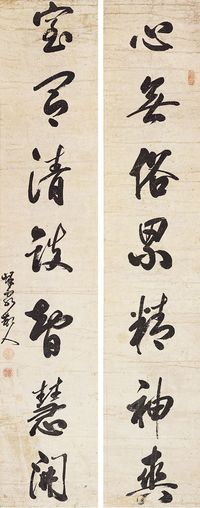 心無俗累精神爽
室有清談智慧開
散人